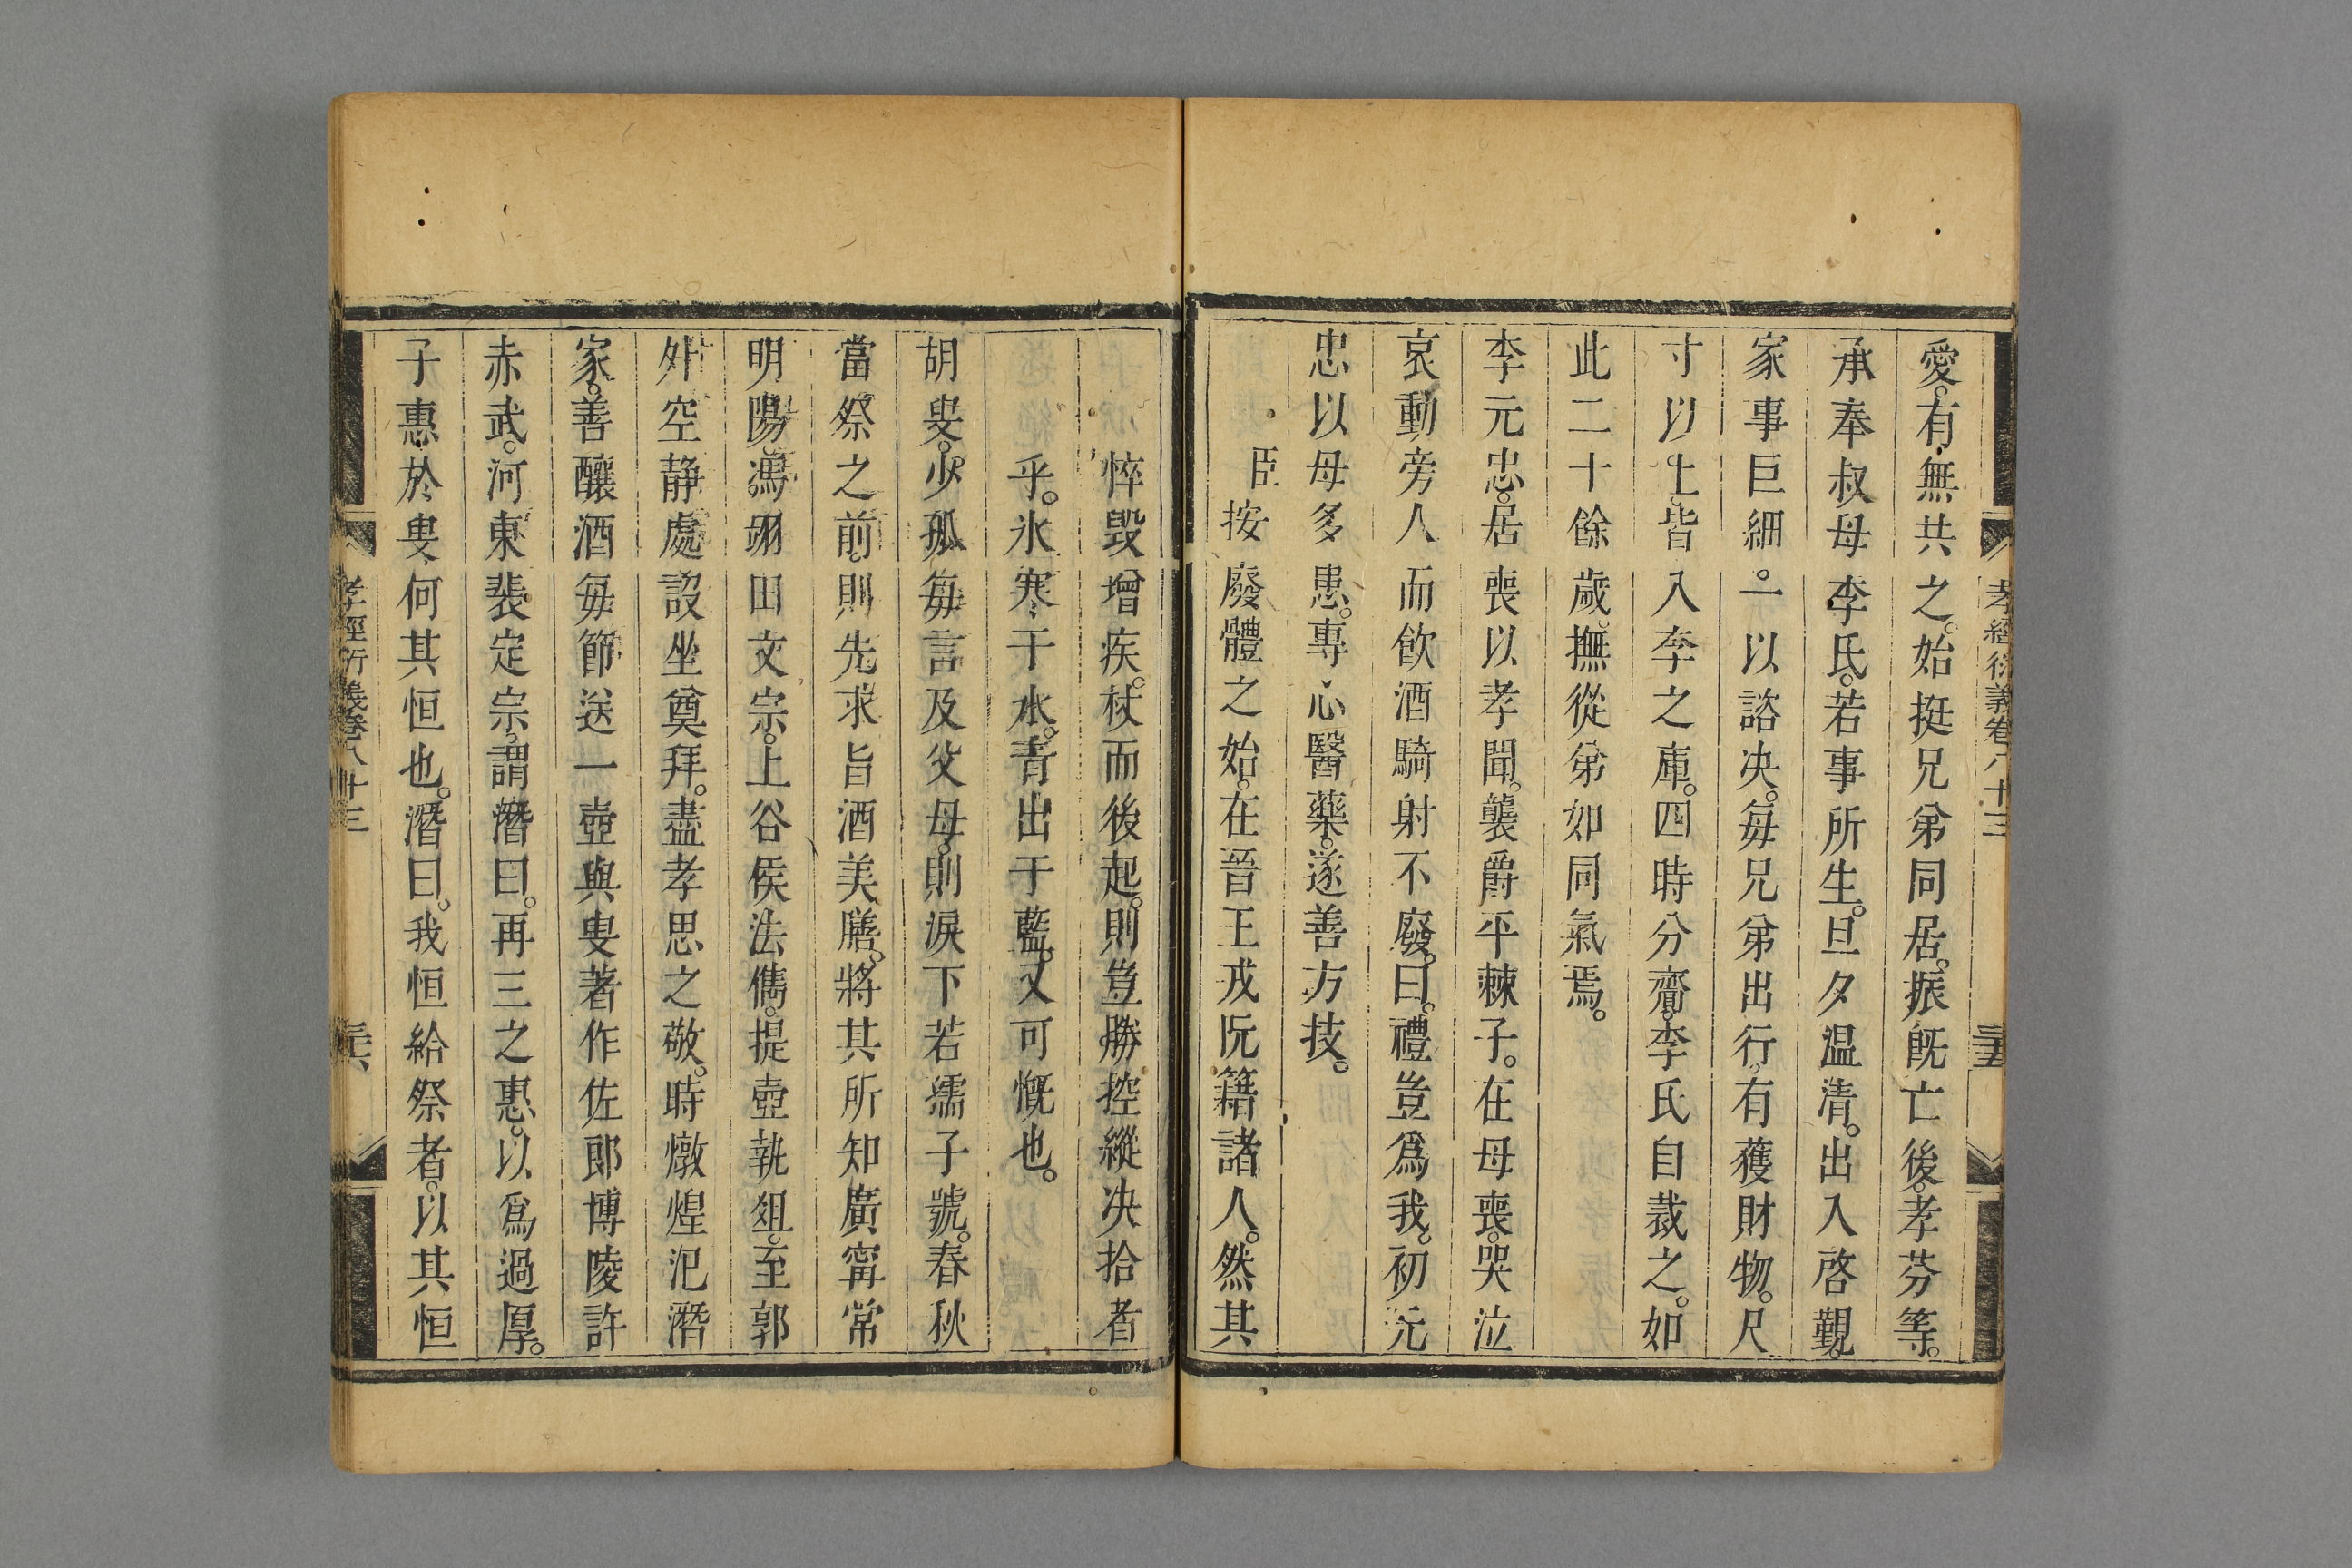 孝經衍義卷八十三
三十五
愛。有無共之。始挺兄弟同居。振旣亡後。孝芬等。
承奉叔母李氏。若事所生。旦夕温清。出入啓覲。
家事巨細。一以諮决。每兄弟出行。有獲財物。尺
寸以上。皆入李之庫。四時分賷。李氏自裁之。如
此二十餘歲。撫從弟如同氣焉。
李元忠。居喪以孝聞。襲爵平棘子。在母喪。哭泣
哀動旁人。而飲酒騎射不廢。曰。禮豈爲我。初元
忠以母多患。專心醫藥。遂善方技。
臣按廢體之始。在晉王戎阮籍諸人。然其
悴毀增疾。杖而後起。則豈勝控縱决拾者
乎。氷寒于水。青出于藍。又可慨也。
胡叟。少孤。每言及父母。則淚下若孺子號。春秋
當祭之前。則先求旨酒美膳。將其所知廣甯常
明陽。馮翊田文宗。上谷侯法儁。提壺執俎。至郭
外空静處。設坐奠拜。盡孝思之敬。時燉煌氾潛
家。善釀酒。每節送一壺與叟。著作佐郎博陵許
赤武。河東裴定宗。謂潛曰。再三之惠。以爲過厚。
子惠於叟。何其恒也。潛曰。我恒給祭者。以其恒
孝經衍義卷八十三
三十六